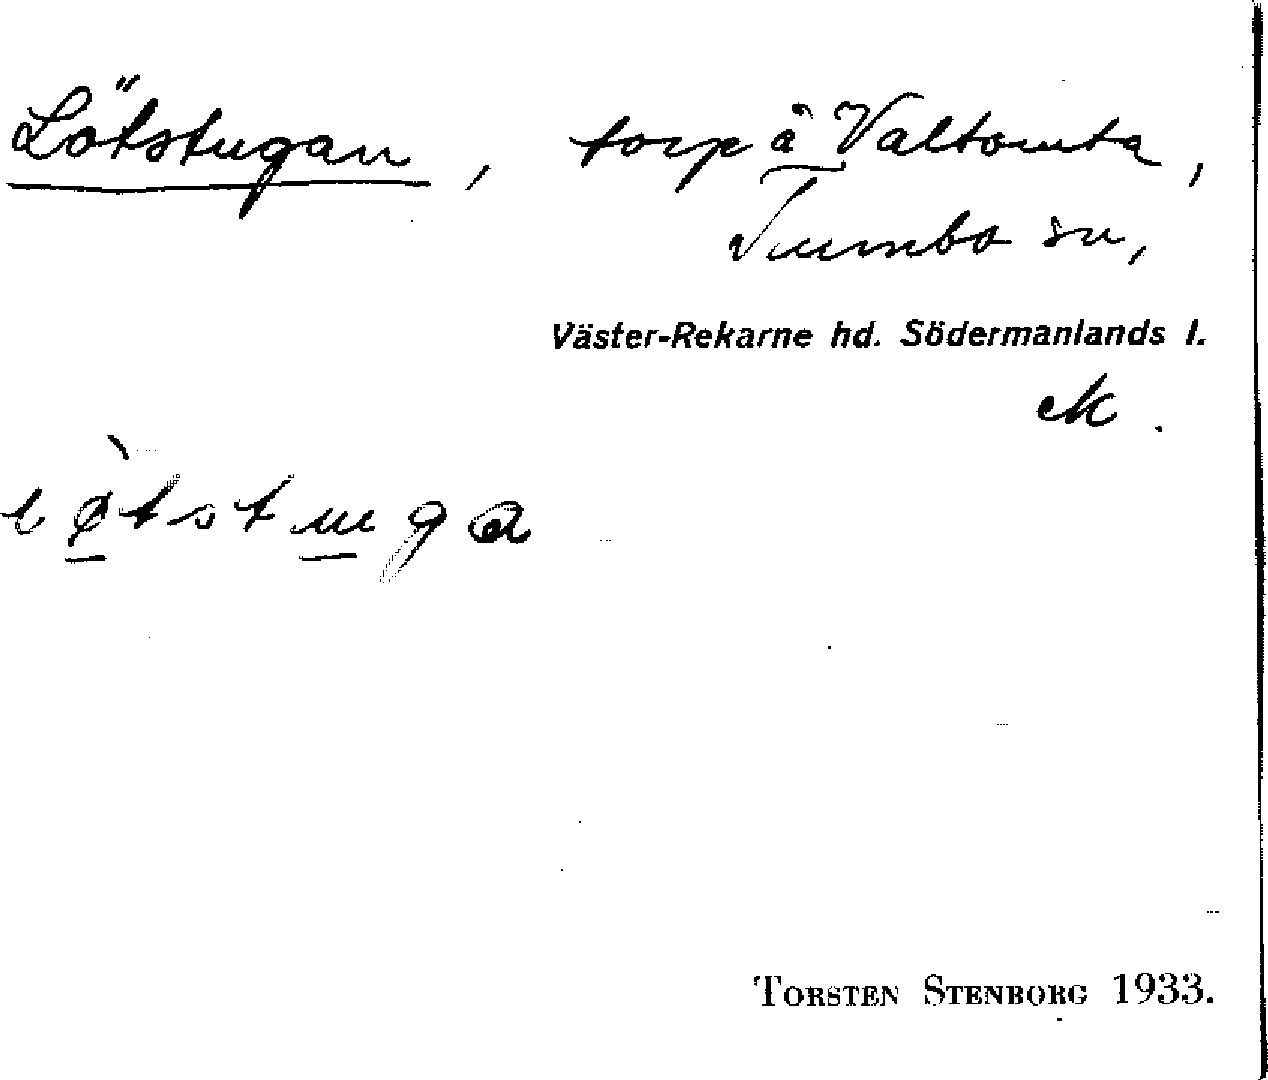 Lötstugan, torp å Valtomta,
Tumbo sn,
Väster-Rekarne hd. Södermanlands l.
lø̀tstuga
TORSTEN STENBORG 1933.